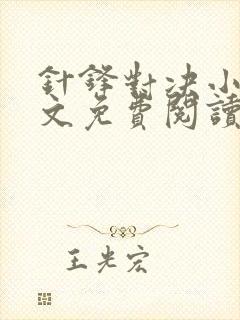 針鋒對決小
文免費閱讀
王光宏